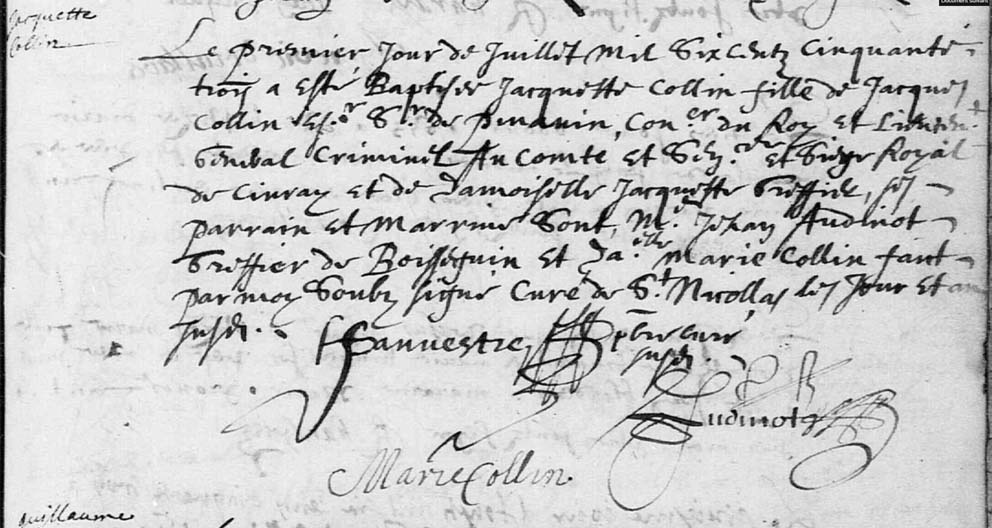 Jacquette
Collin
Le premier jour de juillet mil six centz cinquante
trois a esté baptisée Jacquette Collin fille de Jacques
Collin es.r Sr. de Con.er du Roy et Lieuten.t
General Criminel au Comté et Sen.ée et Siege Royal
de Civray et de Damoiselle Jacquette Greffier, ses
parrain et marrine sont, M.e Jehan Audinot
Greffier de Boisseguin et Da.elle Marie Collin faict
par moy soubz signé Curé de St Nicollas les jour et an
susd.
Sauvestre, pbre curé
susd.
Audinot
Marie Collin
Guillaume